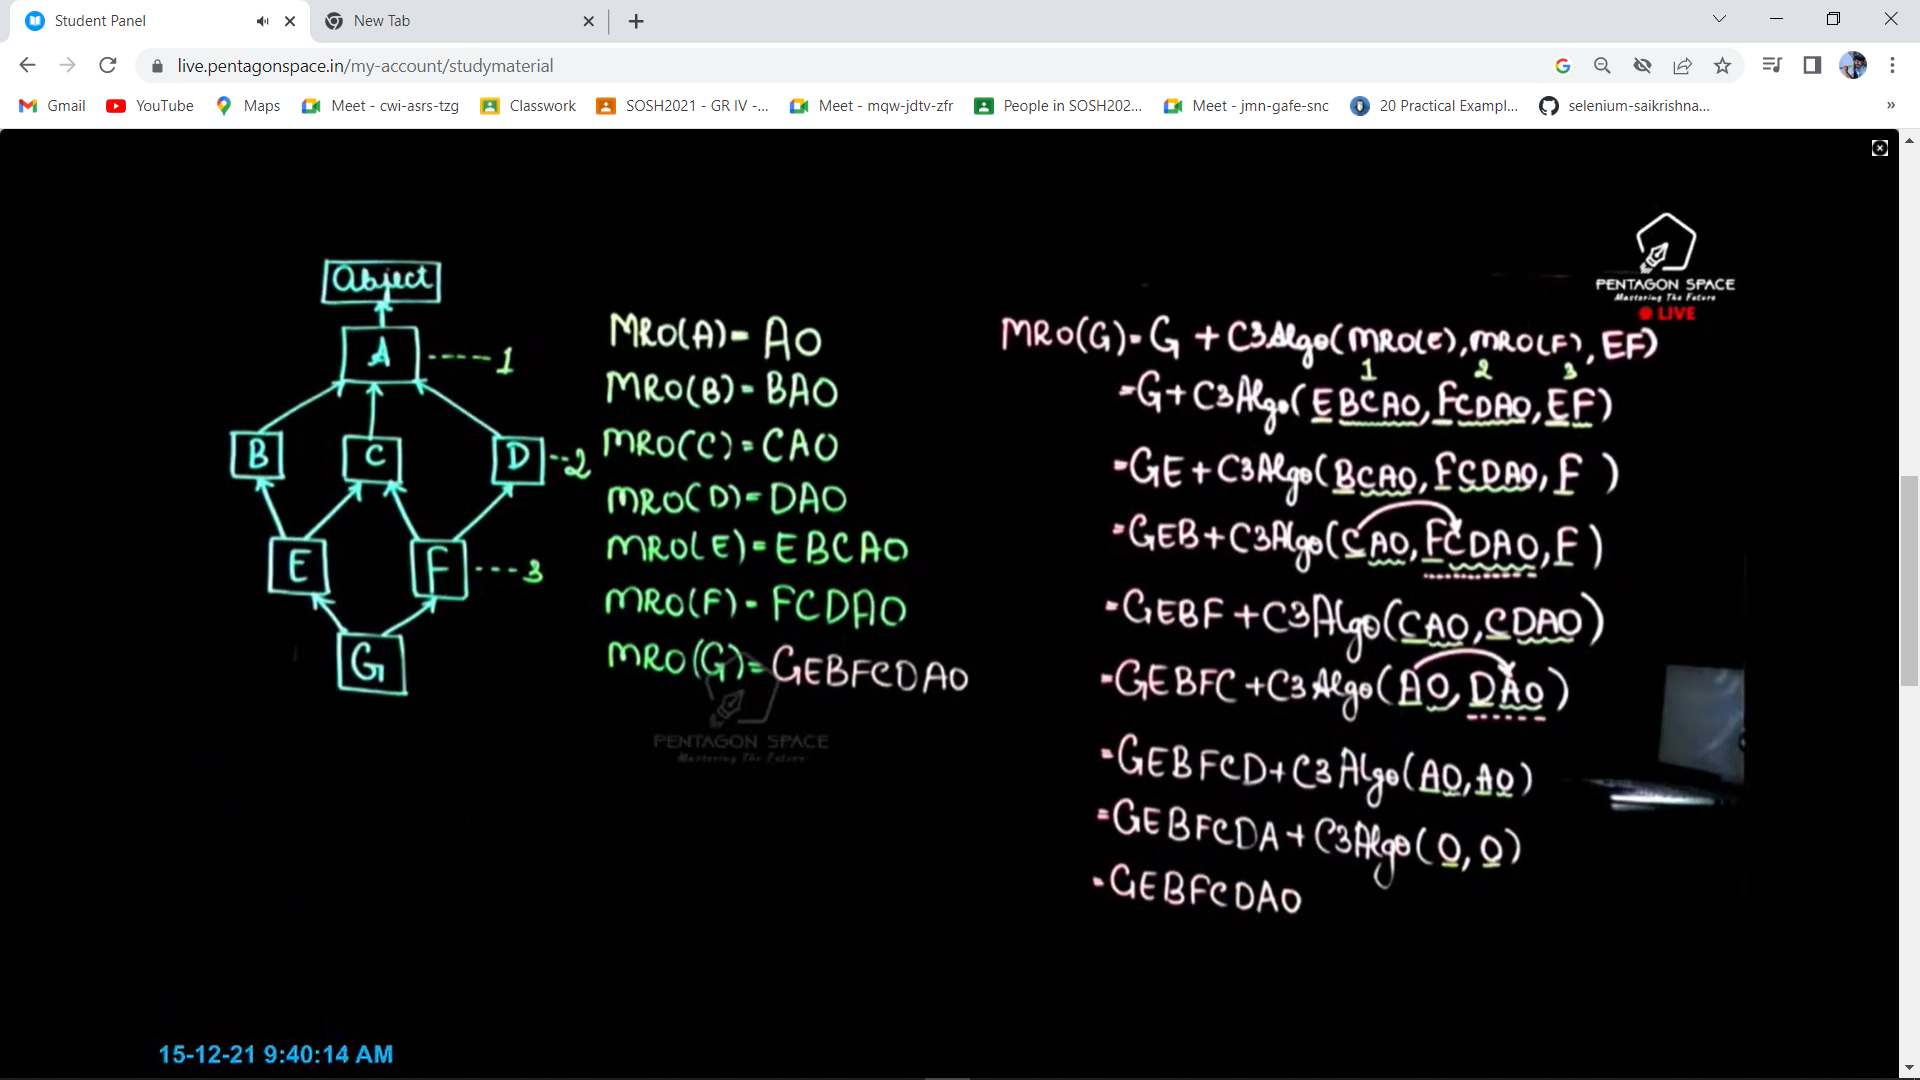 Student Panel
New Tab
live.pentagonspace.in/my-account/studymaterial
Gmail
YouTube
Maps
Meet - cwi-asrs-tzg
Classwork
SOSH2021 - GR IV -...
Meet - mqw-jdtv-zfr
People in SOSH202...
Meet - jmn-gafe-snc
20 Practical Exampl...
selenium-saikrishna...
»
PENTAGON SPACE
Mastering The Future
LIVE
Object
A ----1
B C D --2
E F ---3
G
MRO(A)= AO
MRO(B)= BAO
MRO(C)= CAO
MRO(D)= DAO
MRO(E)= EBCAO
MRO(F)= FCDAO
MRO(G)= GEBFCDAO
PENTAGON SPACE
Mastering The Future
MRO(G)= G + C3Algo(MRO(E), MRO(F), EF)
1 2 3
=G+ C3Algo( EBCAO, FCDAO, EF)
=GE + C3Algo( BCAO, FCDAO, F )
=GEB+C3Algo(CAO, FCDAO, F )
=GEBF +C3Algo(CAO, CDAO)
=GEBFC +C3Algo( AO, DAO)
=GEBFCD+C3 Algo(AO, AO)
=GEBFCDA + C3Algo( O, O)
=GEBFCDAO
15-12-21 9:40:14 AM